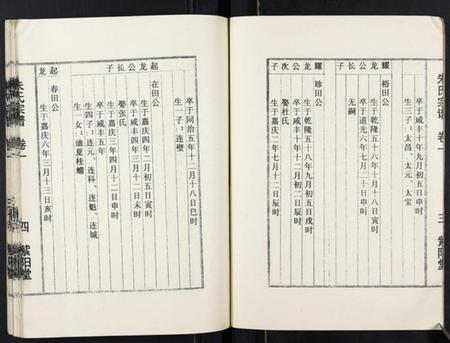 朱氏宗谱 卷一
三 紫阳堂
卒于咸丰十年九月初五申时
生三子：太昌、太元、太宝
耀
裕田公
生于乾隆五十六年十一月十八日寅时
卒于道光六年七月二十日申时
无嗣
耀
珍田公
生于乾隆五十八年九月初五日戌时
卒于咸丰十年十月初二日辰时
娶杜氏
公次子
起龙公长子
在田公
生于嘉庆二年四月初五日寅时
卒于同治五年十二月十八日巳时
生一子：连璧
娶张氏
生于嘉庆三年四月十二日申时
卒于咸丰四年三月十二日未时
生四子：连元、连科、连魁、连城
生一女：适夏桂蟾
起龙
春田公
生于嘉庆六年三月十三日亥时
朱氏宗谱 卷一
四 紫阳堂